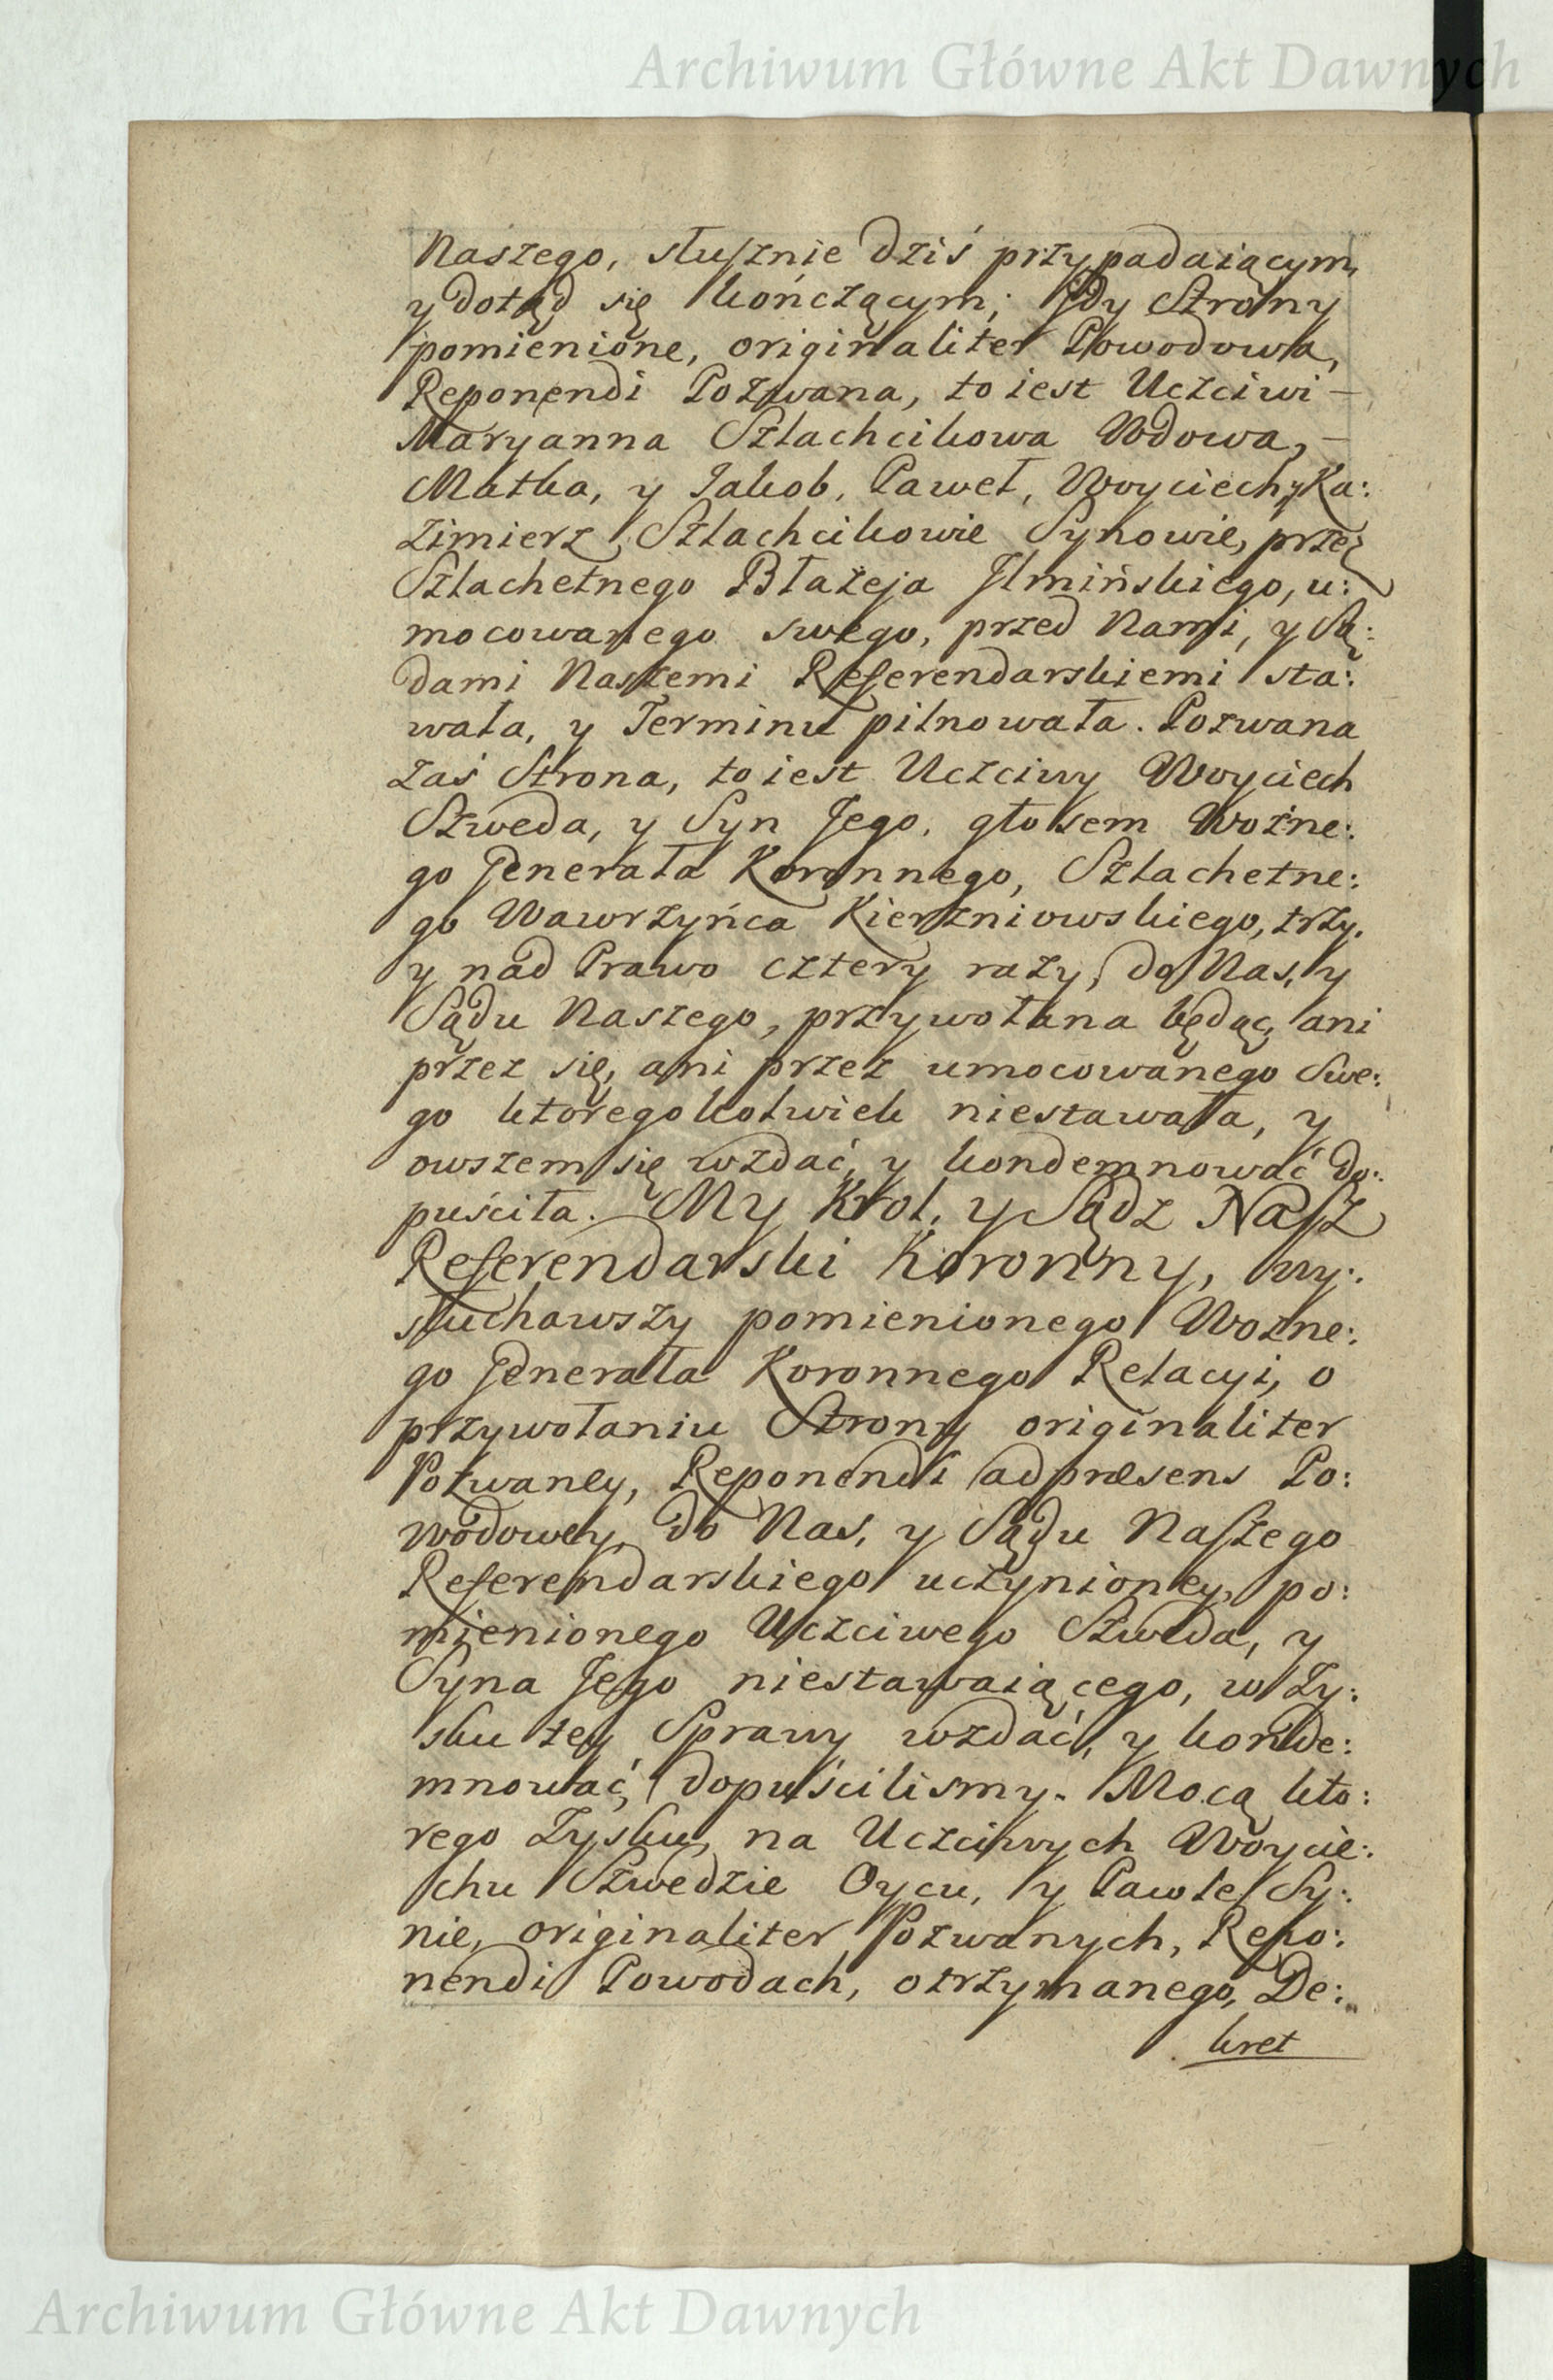 Archiwum Główne Akt Dawnych
Naszego, słusznie dziś przypadaiącym,
y dotąd się kończącym; gdy Strony
pomienione, originaliter Powodowa,
Reponendi Pozwana, to iest Uczciwi –
Maryanna Szlachcikowa Wdowa, –
Matka, y Jakob, Paweł, Woyciech, y Ka:
zimierz Szlachcikowie Synowie, przez
Szlachetnego Błażeja Ilmińskiego, u:
mocowanego swego, przed Nami, y Są:
dami Naszemi Referendarskiemi sta:
wała, y Terminu pilnowała. Pozwana
zaś Strona, to iest Uczciwy Woyciech
Szweda, y Syn Jego, głosem Woźne:
go Jenerała Koronnego, Szlachetne:
go Wawrzyńca Kierzniowskiego, trzy,
y nad Prawo cztery razy, do Nas, y
Sądu Naszego, przywołana będąc, ani
przez się, ani przez umocowanego Swe:
go ktoregokolwiek niestawała, y
owszem się wzdać, y kondemnować do:
puściła. My Krol, y Sądz Nasz
Referendarski Koronny, wy:
słuchawszy pomienionego Woźne:
go Jenerała Koronnego Relacyi, o
przywołaniu Strony originaliter
Pozwaney, Reponendi ad præsens Po:
wodowey, do Nas, y Sądu Naszego
Referendarskiego uczynioney, po:
mienionego Uczciwego Szweda, y
Syna Jego niestawaiącego, w Zy:
sku tey Sprawy wzdać, y konde:
mnować, dopuściliśmy. Mocą kto:
rego Zysku, na Uczciwych Woycie:
chu Szwedzie Oycu, y Pawle Sy:
nie, originaliter Pozwanych, Repo:
nendi Powodach, otrzymanego, De:
kret
Archiwum Główne Akt Dawnych